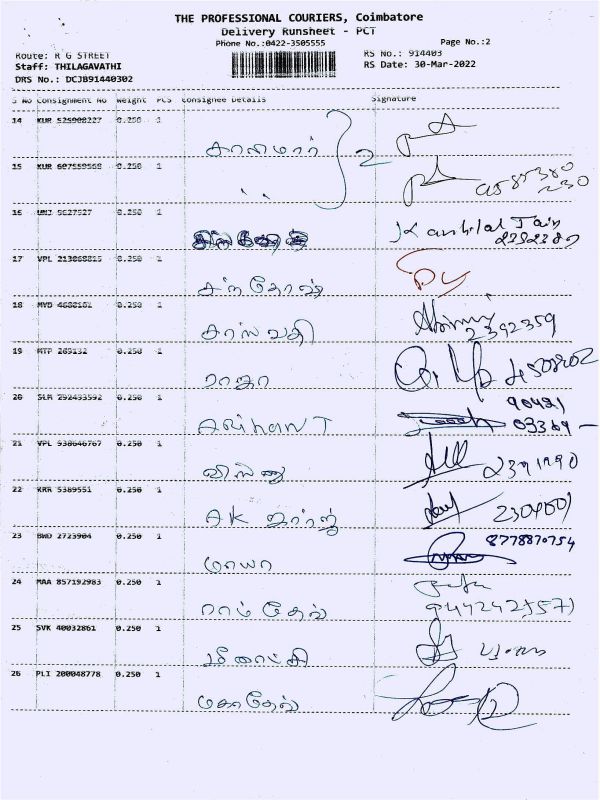 THE PROFESSIONAL COURIERS, Coimbatore
Delivery Runsheet - PCT
Phone No.:0422-3505555
Page No.:2
Route: R G STREET
RS No.: 914403
Staff: THILAGAVATHI
RS Date: 30-Mar-2022
DRS No.: DCJB91440302
S No Consignment No Weight PCS Consignee Details Signature
14 KUR 525908227 0.250 1
2
15 KUR 607559568 0.250 1
" 9585380
230
16 UNJ 5627527 0.250 1
Kanhilal Jain
17 VPL 213868815 0.250 1
சந்தோஷ்
18 MYD 4688161 0.250 1
சரஸ்வதி 2392359
19 MTP 269132 0.250 1
ராஜா
20 SLM 292433592 0.250 1
90421
03369
21 VPL 938646767 0.250 1
விஸ்ணு
22 KRR 5389551 0.250 1
AK ஜார்ஜ்
23 BWD 2723904 0.250 1
8778870754
மாயா
24 MAA 857192983 0.250 1
ராம் தேவ்
25 SVK 40032861 0.250 1
மீனாட்சி
26 PLI 200048778 0.250 1
மகாதேவ்